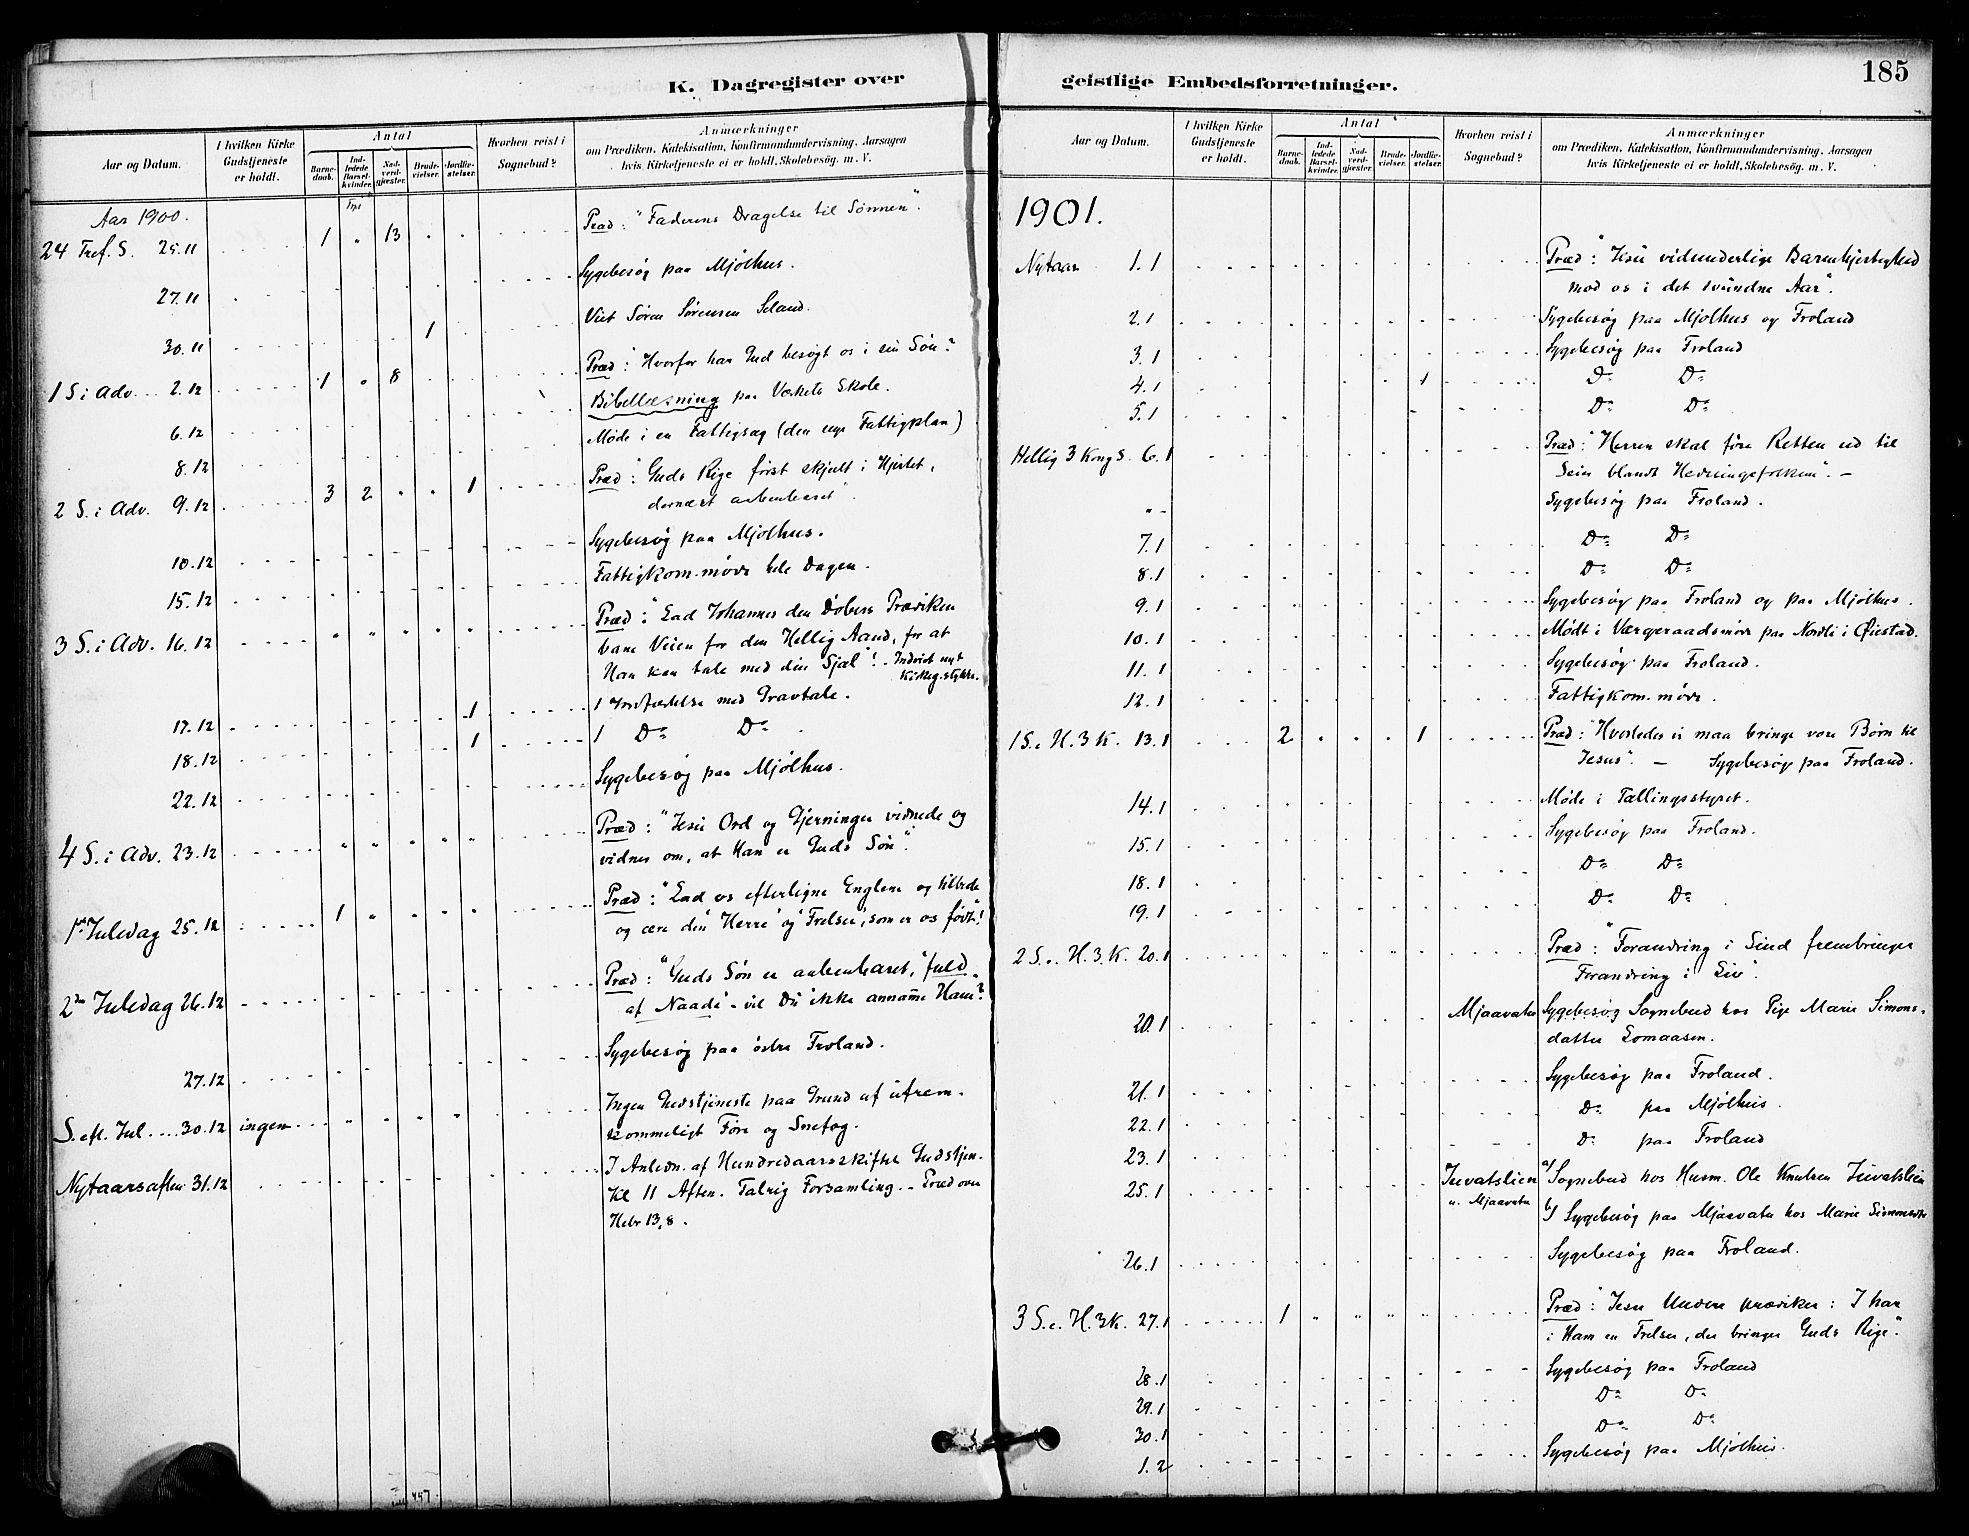 K. Dagregister over
Aar og Datum.
I hvilken Kirke Gudstjeneste er holdt.
Antal
Barnedaab.
Indledede Barselkvinder.
Nadverdgjæster.
Brudevielser.
Jordfæstelser.
Hvorhen reist i Sognebud?
Anmærkninger
om Prædiken, Katekisation, Konfirmandundervisning, Aarsagen
hvis Kirketjeneste ei er holdt, Skolebesøg. m. V.
Aar 1900.
24 Tref. S. 25.11 1 " 13 Præd: "Faderens Dragelse til Sønnen".
27.11 Sygebesøg paa Mjølhus.
30.11 1 Viet Søren Sørensen Seland.
1 S. i Adv. 2.12 1 " 8 Præd: "Hvorfor har Gud besøgt os i sin Søn?
6.12 Bibellæsning paa Vækets Skole.
8.12 Møde i en Fattigsag (den nye Fattigplan)
2 S. i Adv. 9.12 3 2 " " 1 Præd: "Guds Rige først skjult i Hjertet,
dernæst aabenbaret".
10.12 Sygebesøg paa Mjølhus.
15.12 Fattigkom.møde hele Dagen.
3 S. i Adv. 16.12 " " " " " Præd: "Lad Johannes den Døbers Prædiken
bane Veien for den Hellig Aand, for at
Han kan tale med din Sjæl"! - Indviet nyt
Kirkeg.stykke.
17.12 1 1 Jordfæstelse med Gravtale.
18.12 1 1 Do Do
22.12 Sygebesøg paa Mjølhus.
4 S. i Adv. 23.12 " " " " " Præd: "Jesu Ord og Gjerninger vidnede og
vidner om, at Han er Guds Søn".
1ste Juledag 25.12 1 " " " " Præd: "Lad os efterligne Englene og tilbede
og ære din 'Herre' og 'Frelser', som er os født"!
2den Juledag 26.12 Præd: "Guds Søn er aabenbaret, "fuld
af Naade" - vil Du ikke annamme Ham"?
27.12 Sygebesøg paa østre Froland.
S. eft. Jul .... 30.12 ingen Ingen Gudstjeneste paa Grund af ufrem-
kommeligt Føre og Snefog.
Nytaarsaften 31.12 I Anledn. af Hundredaarsskiftet Gudstjen.
Kl 11 Aften. Talrig Forsamling. - Præd over
Hebr 13,8.
geistlige Embedsforretninger.
185
Aar og Datum.
I hvilken Kirke Gudstjeneste er holdt.
Antal
Barnedaab.
Indledede Barselkvinder.
Nadverdgjæster.
Brudevielser.
Jordfæstelser.
Hvorhen reist i Sognebud?
Anmærkninger
om Prædiken, Katekisation, Konfirmandundervisning, Aarsagen
hvis Kirketjeneste ei er holdt, Skolebesøg. m. V.
1901.
Nytaar 1.1 Præd: "Jesu vidunderlige Barmhjertighed
mod os i det svundne Aar".
2.1 Sygebesøg paa Mjølhus og Froland
3.1 Sygebesøg paa Froland
4.1 1 Do Do
5.1 Do Do
Hellig 3 Kong S. 6.1 Præd: "Herren skal føre Retten ud til
Seier blandt Hedningefolkene". -
" - Sygebesøg paa Froland.
7.1 Do Do
8.1 Do Do
9.1 Sygebesøg paa Froland og paa Mjølhus.
10.1 Mødt i Værgeraadsmøde paa Nordli i Øiestad.
11.1 Sygebesøg paa Froland.
12.1 Fattigkom.møde.
1 S. e. H. 3 K. 13.1 2 " " " 1 Præd: "Hvorledes vi maa bringe vore Børn til
Jesus". - Sygebesøg paa Froland.
14.1 Møde i Tællingsstyret.
15.1 Sygebesøg paa Froland.
18.1 Do Do
19.1 Do Do
2 S. e. H. 3. K. 20.1 Præd: "Forandring i Sind frembringer
Forandring i Liv".
20.1 Mjaavatn Sygebesøg Sognebud hos Pige Marie Simons-
datter Lomaasen.
21.1 Sygebesøg paa Froland.
22.1 Do paa Mjølhus.
23.1 Do paa Froland
25.1 Juvatslien a) Sognebud hos Husm. Ole Knutsen Juvatslien
u. Mjaavatn b) Sygebesøg paa Mjaavatn hos Marie Simonsdtr
26.1 Sygebesøg paa Froland.
3 S. e. H. 3 K. 27.1 1 " " " " Præd: "Jesu Undere prædiker: I har
i Ham en Frelser, der bringer Guds Rige".
28.1 Sygebesøg paa Froland
29.1 Do Do
30.1 Do Do
1.2 Sygebesøg paa Mjølhus.